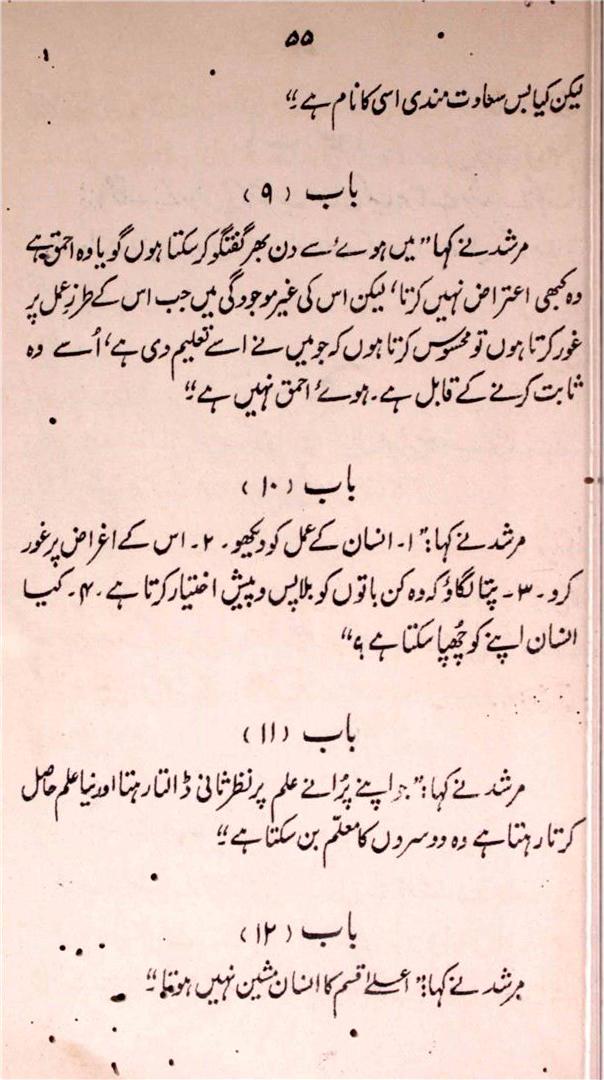 ۵۵
لیکن کیا بس سعادت مندی اسی کا نام ہے۔“
باب (۹)
مرشد نے کہا ”میں ہوئے سے دن بھر گفتگو کر سکتا ہوں گویا وہ احمق ہے
وہ کبھی اعتراض نہیں کرتا، لیکن اس کی غیر موجودگی میں جب اس کے طرزِ عمل پر
غور کرتا ہوں تو محسوس کرتا ہوں کہ جو میں نے اسے تعلیم دی ہے، اُسے وہ
ثابت کرنے کے قابل ہے۔ ہوئے احمق نہیں ہے۔“
باب (۱۰)
مرشد نے کہا: ”۱۔ انسان کے عمل کو دیکھو۔ ۲۔ اس کے اغراض پر غور
کرو۔ ۳۔ پتا لگاؤ کہ وہ کن باتوں کو بلا پس و پیش اختیار کرتا ہے۔ ۴۔ کیا
انسان اپنے کو چُھپا سکتا ہے؟“
باب (۱۱)
مرشد نے کہا: ”جو اپنے پُرانے علم پر نظر ثانی ڈالتا رہتا اور نیا علم حاصل
کرتا رہتا ہے وہ دوسروں کا معلّم بن سکتا ہے۔“
باب (۱۲)
مرشد نے کہا: ”اعلےٰ قسم کا انسان مشین نہیں ہوتا۔“